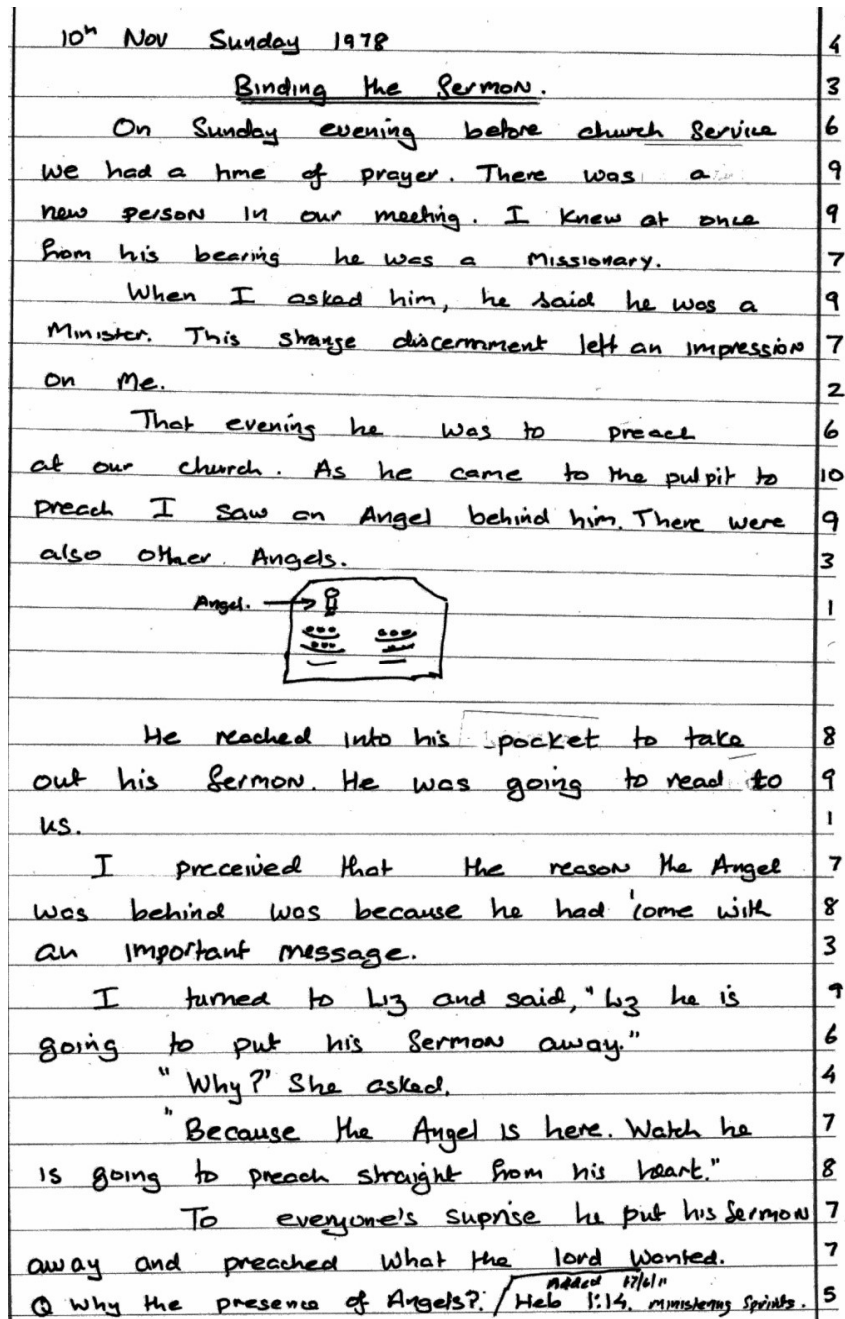 10th Nov Sunday 1978 4
Binding the Sermon. 3
On Sunday evening before church Service 6
we had a time of prayer. There was a 9
new person in our meeting. I knew at once 9
from his bearing he was a Missionary. 7
When I asked him, he said he was a 9
Minister. This strange discernment left an impression 7
on Me. 2
That evening he was to preach 6
at our church. As he came to the pulpit to 10
preach I saw an Angel behind him. There were 9
also other Angels. 3
Angel. 1
He reached into his pocket to take 8
out his Sermon. He was going to read to 9
us. 1
I preceived that the reason the Angel 7
was behind was because he had come with 8
an important message. 3
I turned to Liz and said, "Liz he is 9
going to put his Sermon away." 6
"Why?" She asked. 4
"Because the Angel is here. Watch he 7
is going to preach straight from his heart." 8
To everyone's suprise he put his Sermon 7
away and preached what the lord wanted. 7
Added 17/6/11
Q Why the presence of Angels?. Heb 1:14. ministering Spirits. 5